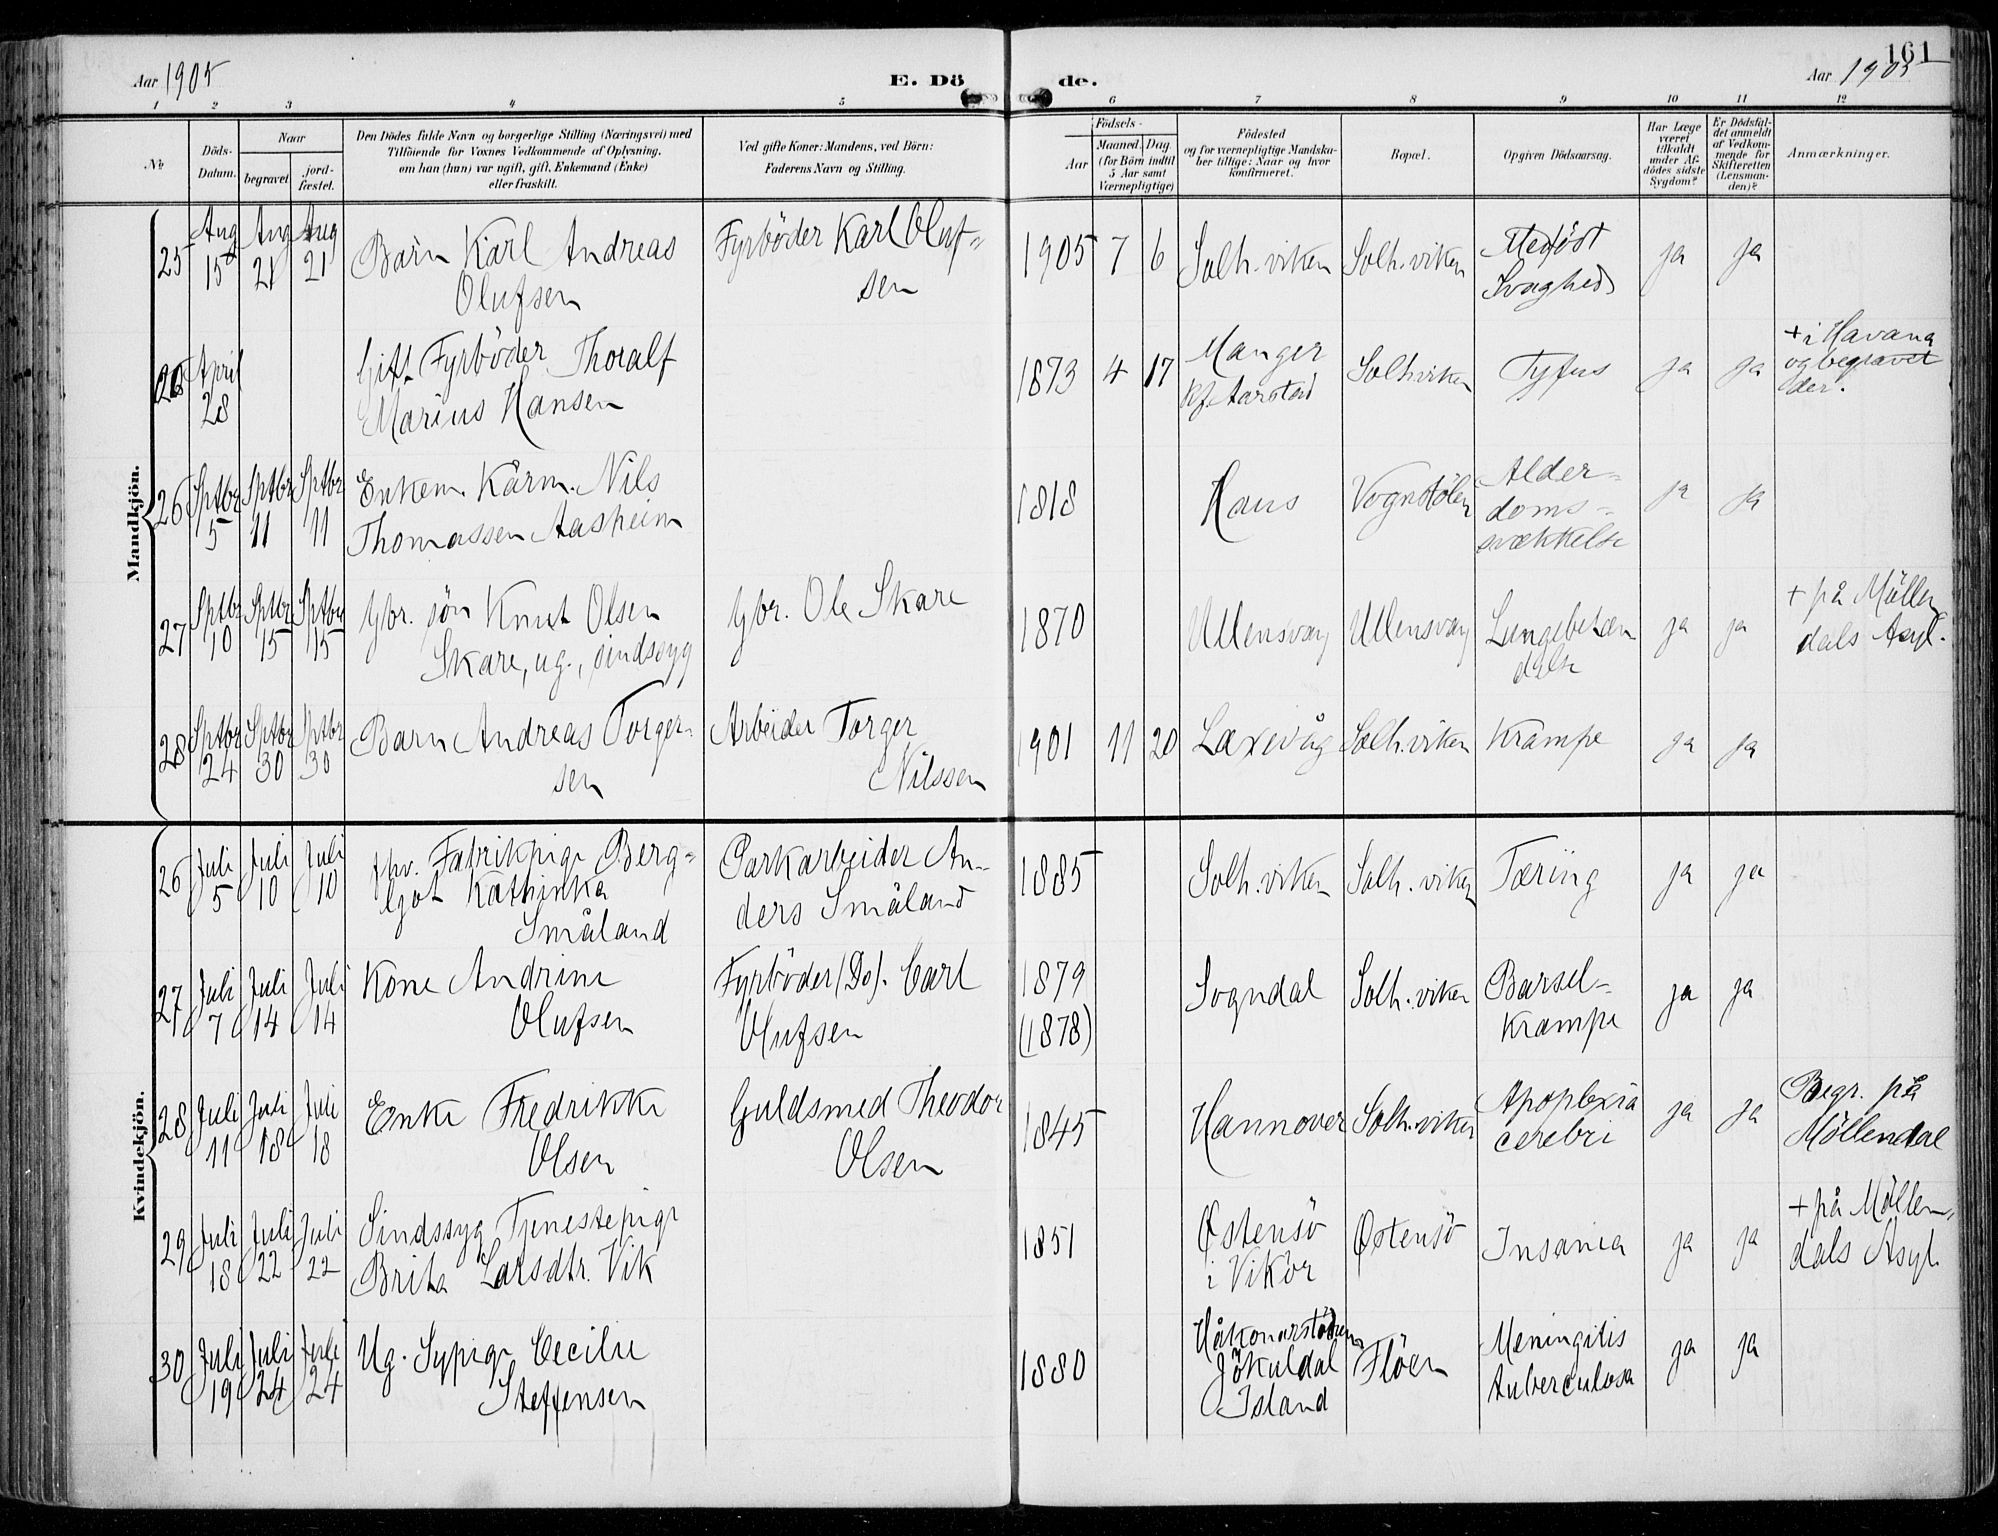 Aar 1905
E. Dö
de.
161
Aar 1905
1 2 3 4 5 6 7 8 9 10 11 12
No
Döds-
Datum.
Naar
begravet.
jord-
fæstet.
Den Dödes fulde Navn og borgerlige Stilling (Næringsvei) med
Tilföiende for Voxnes Vedkommende af Oplysning,
om han (hun) var ugift, gift, Enkemand (Enke)
eller fraskilt.
Ved gifte Koner: Mandens, ved Börn:
Faderens Navn og Stilling.
Födsels-
Aar
Maaned. Dag.
(for Börn indtil
5 Aar samt
Værnepligtige)
Födested
og for værnepligtige Mandska-
ber tillige: Naar og hvor
konfirmeret.
Bopæl.
Opgiven Dödsaarsag.
Har Læge
været
tilkaldt
under Af-
dödes sidste
Sygdom?
Er Dödsfal-
det anmeldt
af Vedkom-
mende for
Skifteretten
(Lensman-
den)?
Anmærkninger.
Mandkjön.
25 Aug 15 Aug 21 Aug 21 Barn Karl Andreas
Olufsen
Fyrböder Karl Oluf-
sen
1905 7 6 Solh.viken Solh.viken Medföst
Svaghed
ja ja
April
28
Gift Fyrböder Thoralf
Marius Hansen
1873 4 17 Manger
Kf. Aarstad
Solhviken Tyfus ja ja
+ i Havana
og begravet
der.
26 Sptbr 5 Sptbr 11 Sptbr 11 Enkem. Kårm. Nils
Thomassen Aasheim
1818 Haus Vognstölen Alder-
doms-
svækkelse
ja ja
27 Sptbr 10 Sptbr 15 Sptbr 15 Gbr. sön Knut Olsen
Skare, ug., sindssyg
Gbr. Ole Skare
1870 Ullensvang Ullensvang Lungebetæn
delse
ja ja
+ på Möllen
dals Asyl.
28 Sptbr 24 Sptbr 30 Sptbr 30 Barn Andreas Torger-
sen
Arbeider Torger
Nilssen
1901 11 20 Laxevåg Solh.viken Krampe ja ja
Kvindekjön.
26 Juli 5 Juli 10 Juli 10 fhv. Fabrikpige Berg-
ljot Kathinka
Småland
Parkarbeider An-
ders Småland
1885 Solh.viken Solh.viken Tæring ja ja
27 Juli 7 Juli 14 Juli 14 Kone Andrine
Olufsen
Fyrböder (Do). Carl
Olufsen
1879
(1878)
Sogndal Solh.viken Barsel-
krampe
ja ja
28 Juli 11 Juli 18 Juli 18 Enke Fredrikke
Olsen
Guldsmed Theodor
Olsen
1845 Hannover Solh.viken Apoplexia
cerebri
ja ja
Begr. på
Möllendal
29 Juli 18 Juli 22 Juli 22 Sindssyg Tjenestepige
Brita Larsdtr. Vik
1851 Östensö
i Vikör
Östensö Insania ja ja
+ på Möllen,
dals Asyl.
30 Juli 19 Juli 24 Juli 24 Ug. Sypige Cecilie
Steffensen
1880
Jökuldal
Island
Flöen Meningitis
tuberculosa
ja ja